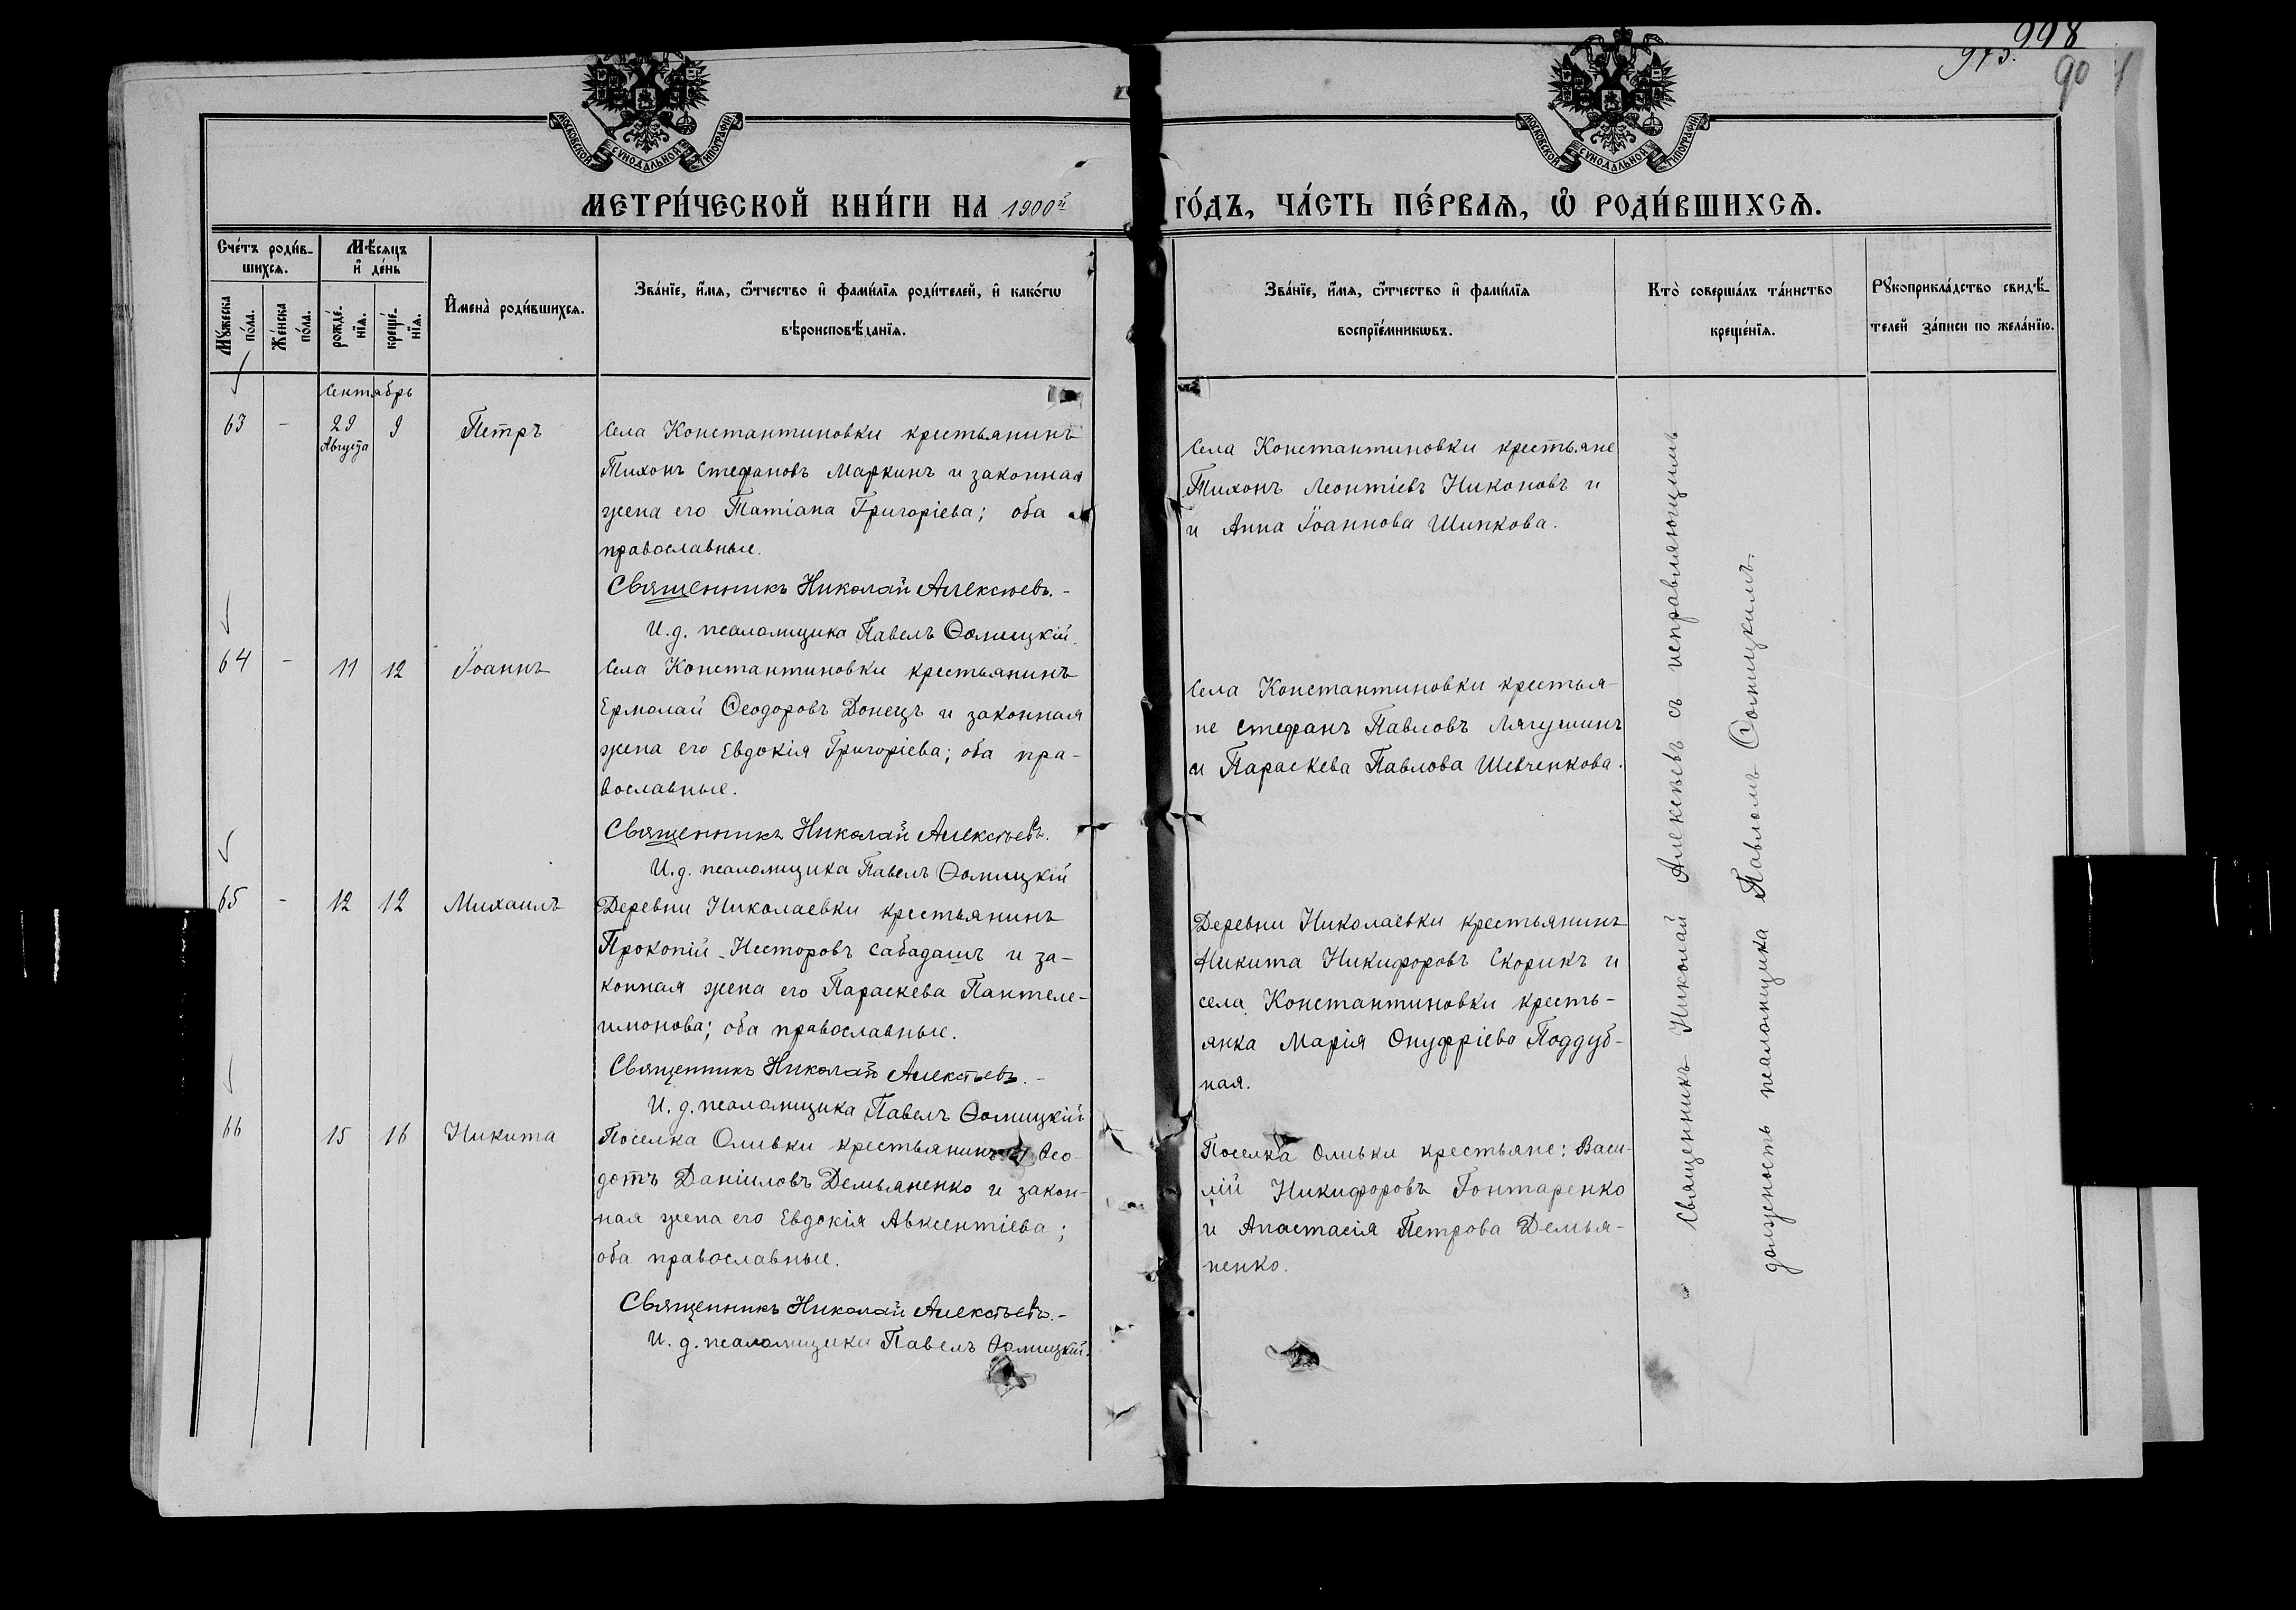 998
973.
90
МОСКОВСКОЙ СѴНОДАЛЬНОЙ ТИПОГРАФІИ
МОСКОВСКОЙ СѴНОДАЛЬНОЙ ТИПОГРАФІИ
МЕТРИ́ЧЕСКОЙ КНИ́ГИ НА 1900й ГО́ДЪ, ЧА́СТЬ ПЕ́РВАѦ, Ѡ҆ РОДИ́ВШИХСѦ.
Сче́тъ роди́в-
шихсѧ.
Мꙋ́жеска
по́ла.
Же́нска
по́ла.
Мѣ́сѧцъ
и҆ де́нь
рожде́-
нїѧ.
креще́-
нїѧ.
И҆мена̀ роди́вшихсѧ.
Зва́нїе, и҆́мѧ, ѻ҆́тчество и҆ фами́лїѧ роди́телей, и҆ како́гѡ
вѣроисповѣ́данїѧ.
Зва́нїе, и҆́мѧ, ѻ҆́тчество и҆ фами́лїѧ
воспрїе́мникѡвъ.
Кто̀ соверша́лъ та́инство
креще́нїѧ.
Рꙋкоприкла́дство свидѣ́-
телей за́писи по жела́нїю.
Сентябрь
63 - 29 9 Петръ
Августа
Села Константиновки крестьянинъ
Тихонъ Стефановъ Маркинъ и законная
жена его Татіана Григоріева; оба
православные.
Священникъ Николай Алексѣевъ.-
И.д. псаломщика Павелъ Ѳомицкій.
Села Константиновки крестьяне
Тихонъ Леонтіевъ Никоновъ и
и Анна Іоаннова Шипкова.
64 - 11 12 Іоаннъ
Села Константиновки крестьянинъ
Ермолай Ѳеодоровъ Донецъ и законная
жена его Евдокія Григоріева; оба пра-
вославные.
Священникъ Николай Алексѣевъ.
И.д. псаломщика Павелъ Ѳомицкій
Села Константиновки крестья-
не Стефанъ Павловъ Лягушинъ
и Параскева Павлова Шевченкова.
65 - 12 12 Михаилъ
Деревни Николаевки крестьянинъ
Прокопій Несторовъ Сабадашъ и за-
конная жена его Параскева Пантеле-
имонова; оба православные.
Священникъ Николай Алексѣевъ.-
И.д. псаломщика Павелъ Ѳомицкій
Деревни Николаевки крестьянинъ
Никита Никифоровъ Скорикъ и
села Константиновки кресть-
янка Марія Онуфріева Поддуб-
ная.
66 15 16 Никита
Поселка Оливки крестьянинъ Ѳео-
дотъ Даніиловъ Демьяненко и закон-
ная жена его Евдокія Авксентіева;
оба православные.
Священникъ Николай Алексѣевъ.-
И.д. псаломщика Павелъ Ѳомицкій.
Поселка Оливки крестьяне: Васи-
лій Никифоровъ Гонтаренко
и Анастасія Петрова Демья-
ненко.
Священникъ Николай Алексѣевъ съ исправляющимъ
должность псаломщика Павломъ Ѳомицкимъ.